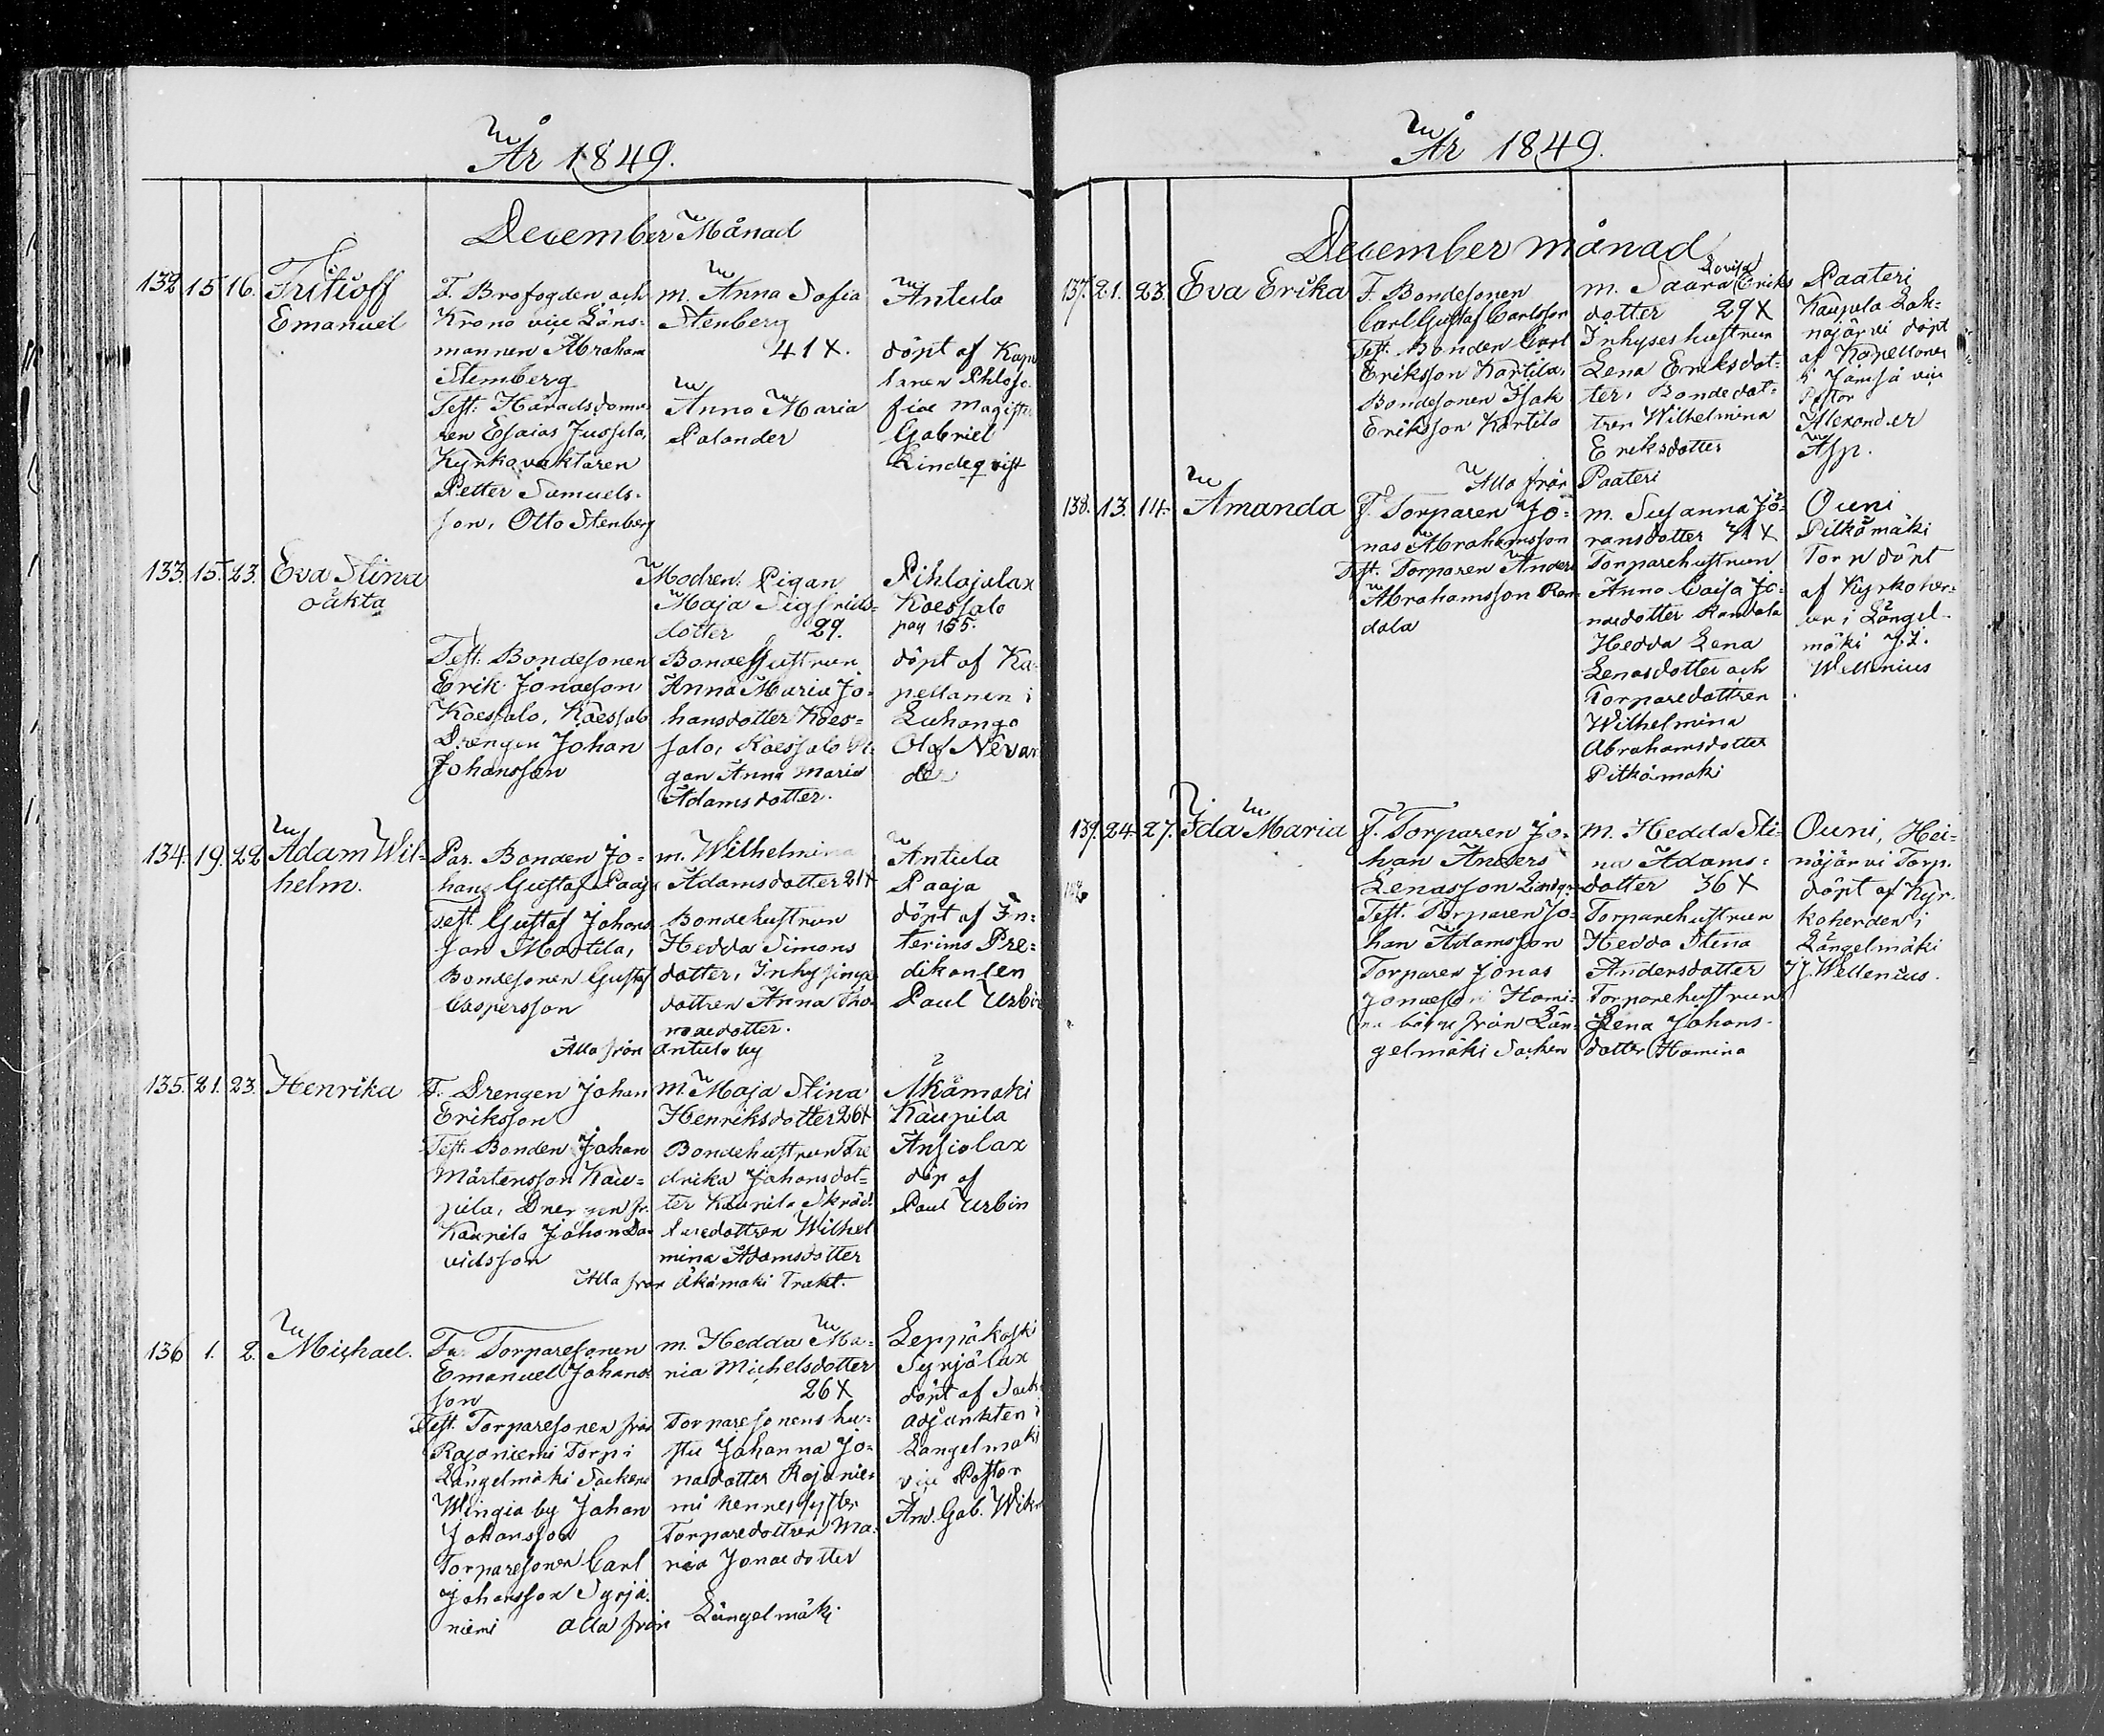 År 1849.
December Månad
132. 15. 16. Fritioff
Emanuel
F. Brofogden och
Krono vice Läns-
mannen Abraham
Stemberg
Test. Häradsdoma-
ren Esaias Jussila,
Kyrkovaktaren
Petter Samuels-
son, Otto Stenberg
m. Anna Sofia
Stenberg
41 X.
Anna Maria
Palander
Antula
döpt af Kape
lanen Philoso
fiae Magistr
Gabriel
Lindeqvist
133. 15. 23. Eva Stina
oäkta
Test. Bondesonen
Erik Jonasson
Koessalo, Koessalo
Drengen Johan
Johansson
Modren: Pigan
Maja Sigfrids-
dotter 29.
Bondehustrun
Anna Maria Jo-
hansdotter Koes-
salo, Koessalo Pi-
gan Anna Maria
Adamsdotter.
Pihlajalax
Koessalo
pag 155.
döpt af Ka-
pellanen i
Luhango
Olof Nevan
der
134. 19. 22. Adam Wil-
helm.
Par. Bonden Jo-
hans Gustaf Paaja
Test. Gustaf Johans
son Martila,
Bondesonen Gustaf
Caspersson
m. Wilhelmina
Adamsdotter 21 X
Bondehustrun
Hedda Simons
dotter, Inhysinge
dottren Anna Tho-
masdotter.
Alla från Antula by
Antula
Paaja
döpt af In-
terims Pre-
dikanten
Paul Urbin
135. 21. 23. Henrika
F. Drengen Johan
Eriksson
Test. Bonden Johan
Mårtensson Kau-
pila, Drengen fr.
Kaupila Johan Da-
vidsson
m. Maja Stina
Henriksdotter 26 X
Bondehustrun Fre
drika Johansdot-
ter Kaupila Skräd-
daredottren Wilhel
mina Adamsdotter
Alla från Åkämaki Trakt.
Åkämaki
Kaupila
Ansiolax
döp af
Paul Urbin
136. 1. 2. Michael.
Fa. Torparesonen
Emanuel Johans
son
Test. Torparesonen från
Rajaniemi Torp i
Längelmäki Sockens
Wingia by Johan
Johansson
Torparesonen Carl
Johansson Syrjä-
niemi
m. Hedda Ma-
ria Michelsdotter
26 X
Torparesonens hu-
stru Johanna Jo-
nasdotter Rajanie-
mi hennes syster
Torparedottren Ma-
ria Jonasdotter
alla från Längelmäki
Leppäkoski
Syrjälax
döpt af Sock
adjunkten i
Längelmäki
vice Pastor
And. Gab. Wikm
År 1849.
December månad
137. 21. 23. Eva Erika
F. Bondesonen
Carl Gustaf Carlsson
Test. Bonden Carl
Eriksson Kartila,
Bondesonen Isak
Eriksson Kartila
Lovisa
m. Saara Eriks
dotter 29 X
Inhyseshustrun
Lena Eriksdot-
ter, Bondedot-
tren Wilhelmina
Eriksdotter
Alla från Paateri
Paateri
Kaupila Lah-
najärvi döpt
af Kapellanen
i Jämsä vice
Pastor
Alexander
Asp.
138. 13. 14. Amanda
F. Torparen Jo-
nas Abrahamsson
Test. Torparen Anders
Abrahamsson Ran-
dala
m. Susanna Jö-
ransdotter 41 X
Torparehustrun
Anna Caisa Jo-
nasdotter Randala
Hedda Lena
Lenasdotter och
Torparedottren
Wilhelmina
Abrahamsdotter
Pitkämaki
Ouni
Pitkämäki
Torp döpt
af Kyrkoher-
den i Längel-
mäki J. J.
Wellenius
139. 24. 27. Ida Maria
F. Torparen Jo-
han Anders
Lenasson
Test. Torparen Jo-
han Adamsson
Torparen Jonas
Jonasson Hami-
na både från Län-
gelmäki Socken
m. Hedda Sti-
na Adams-
dotter 36 X
Torparehustrun
Hedda Stina
Andersdotter
Torparehustrun
Lena Johans-
dotter Hamina
Ouni, Hei-
näjärvi Torp.
döpt af Kyr-
koherden i
Längelmäki
J. J. Wellenius.